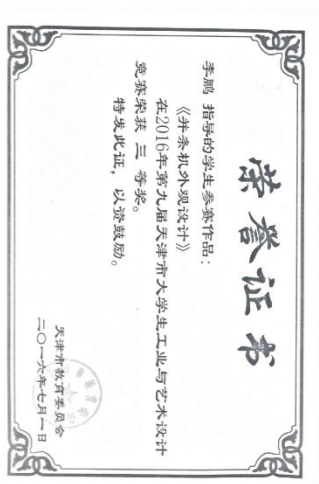 荣誉证书
李鹏 指导的学生参赛作品：
《并条机外观设计》
在2016年第九届天津市大学生工业与艺术设计
竞赛荣获 三 等奖。
特发此证，以资鼓励。
天津市教育委员会
二〇一六年七月一日